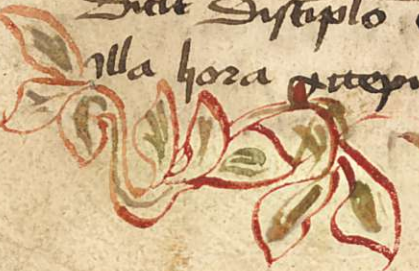 Dicit Discipło
illa hora accepi